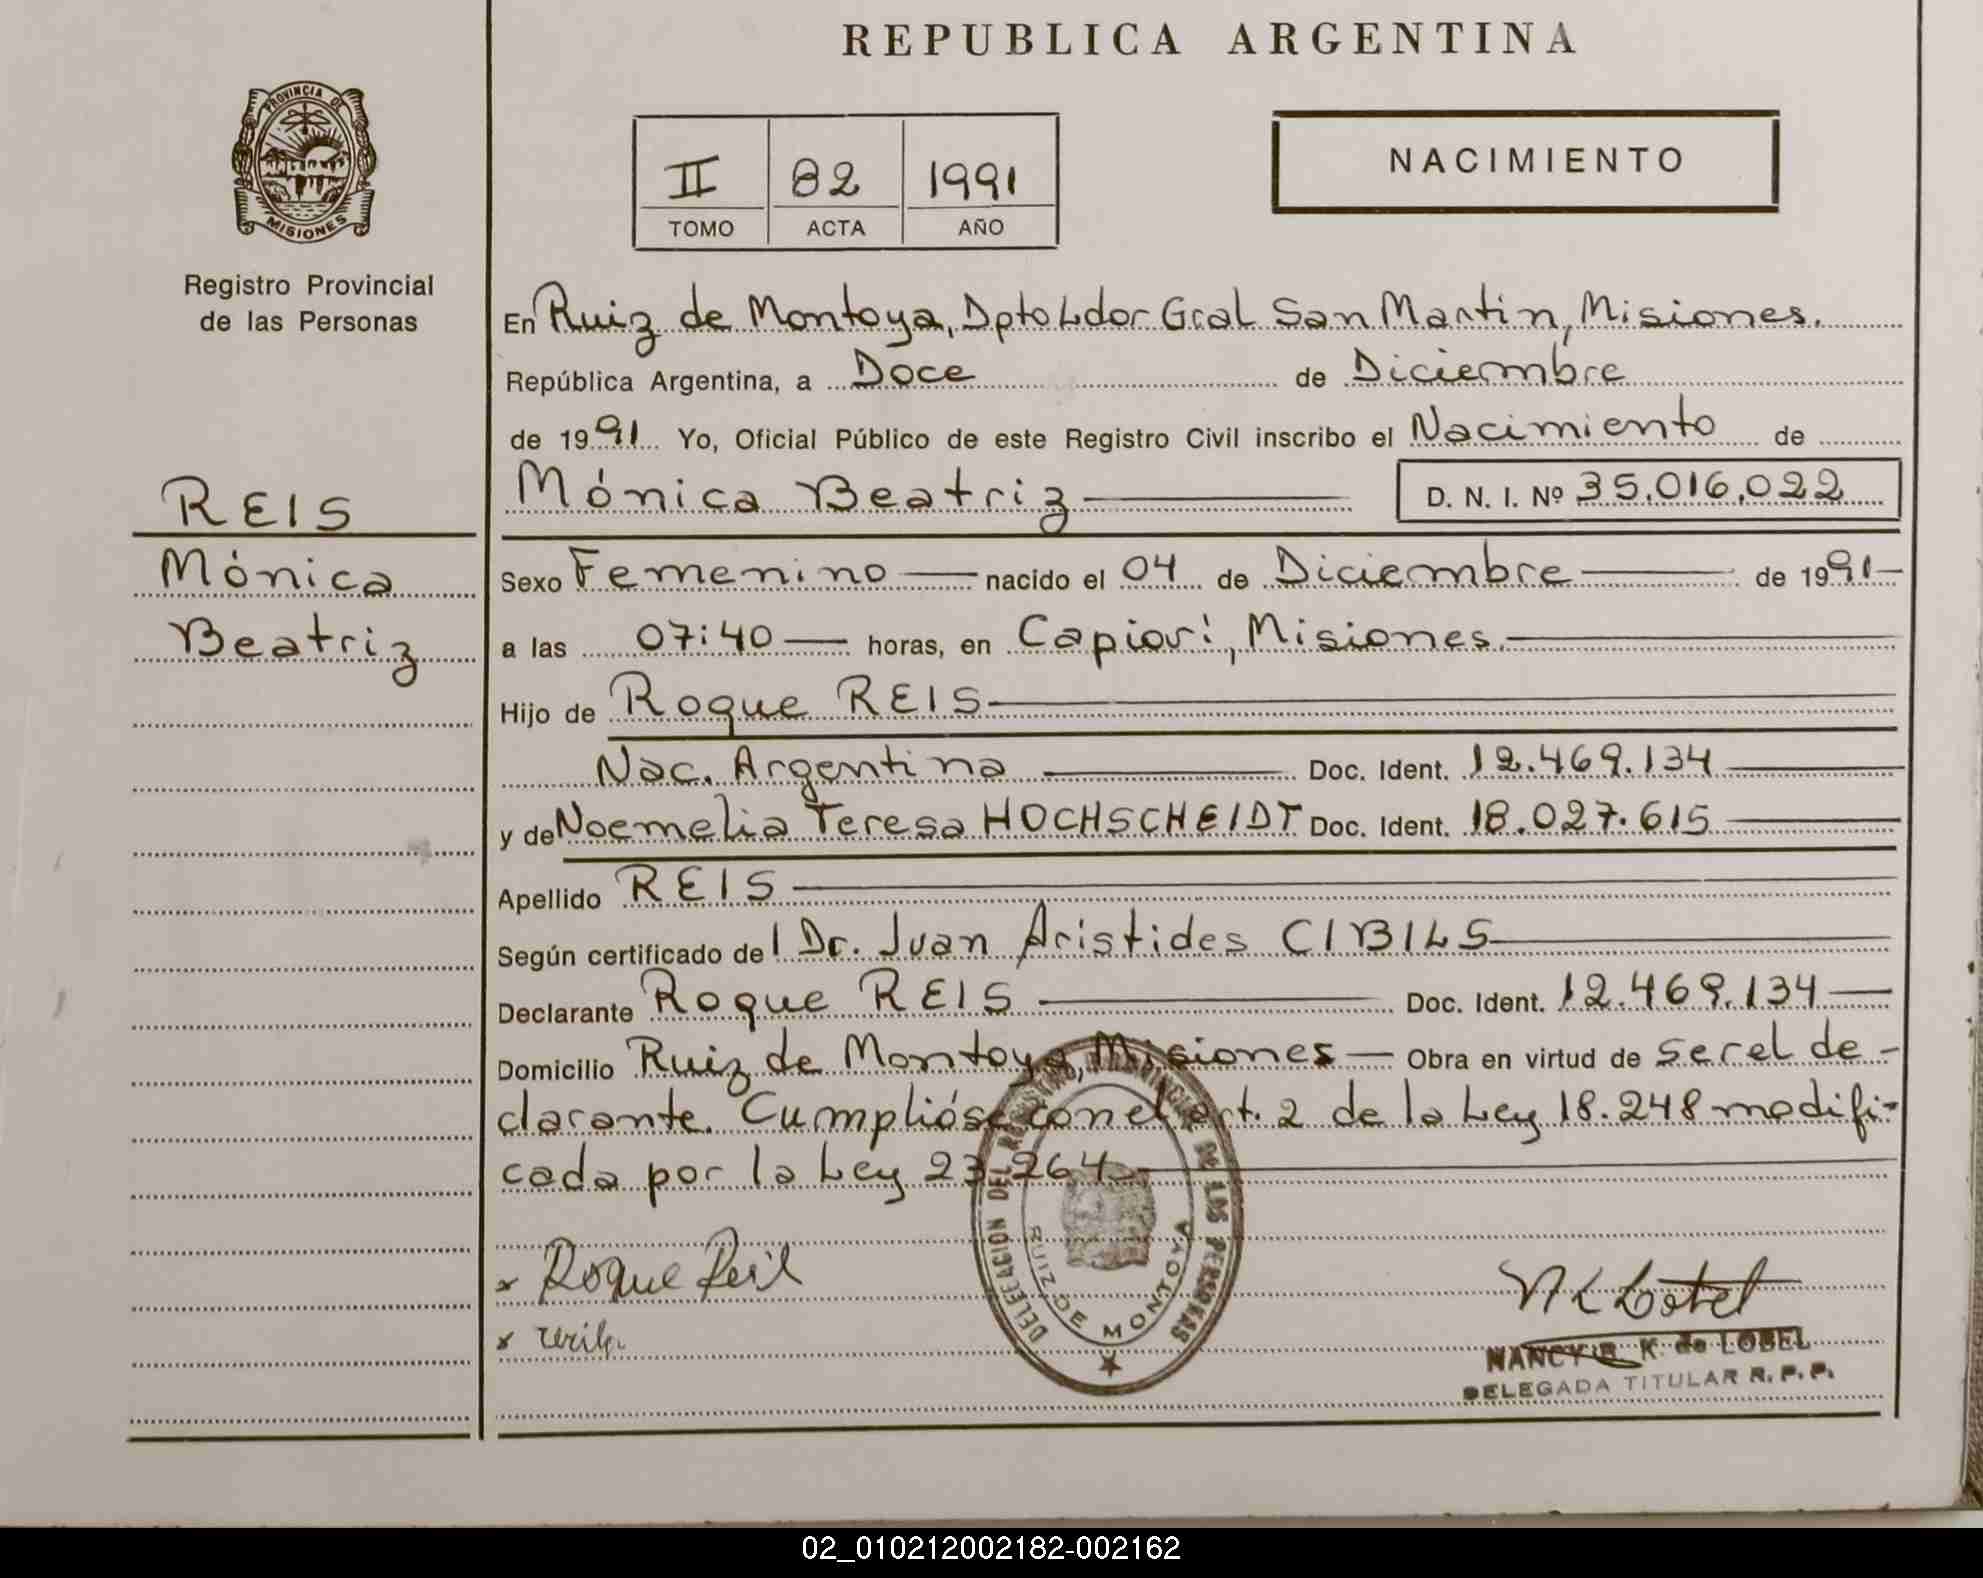 REPUBLICA ARGENTINA
PROVINCIA DE
MISIONES
Registro Provincial
de las Personas
II 82 1991
TOMO ACTA AÑO
NACIMIENTO
En Ruiz de Montoya, Dpto Ldor Gral San Martin, Misiones.
República Argentina, a Doce de Diciembre
de 1991 Yo, Oficial Público de este Registro Civil inscribo el Nacimiento de
Mónica Beatriz D. N. I. Nº 35.016.022
REIS
Mónica
Beatriz
Sexo Femenino nacido el 04 de Diciembre de 1991
a las 07:40 horas, en Capioví, Misiones.
Hijo de Roque REIS
Nac. Argentina Doc. Ident. 12.469.134
y de Noemelia Teresa HOCHSCHEIDT Doc. Ident. 18.027.615
Apellido REIS
Según certificado del Dr. Juan Aristides CIBILS
Declarante Roque REIS Doc. Ident. 12.469.134
Domicilio Ruiz de Montoya, Misiones Obra en virtud de ser el de-
clarante. Cumplióse con el art. 2 de la Ley 18.248 modifi-
cada por la Ley 23.264.
x Roque Reis
x
DELEGACION DEL REGISTRO PROVINCIAL DE LAS PERSONAS
RUIZ DE MONTOYA
NANCY R. K. de LOBEL
DELEGADA TITULAR R. P. P.
02_010212002182-002162